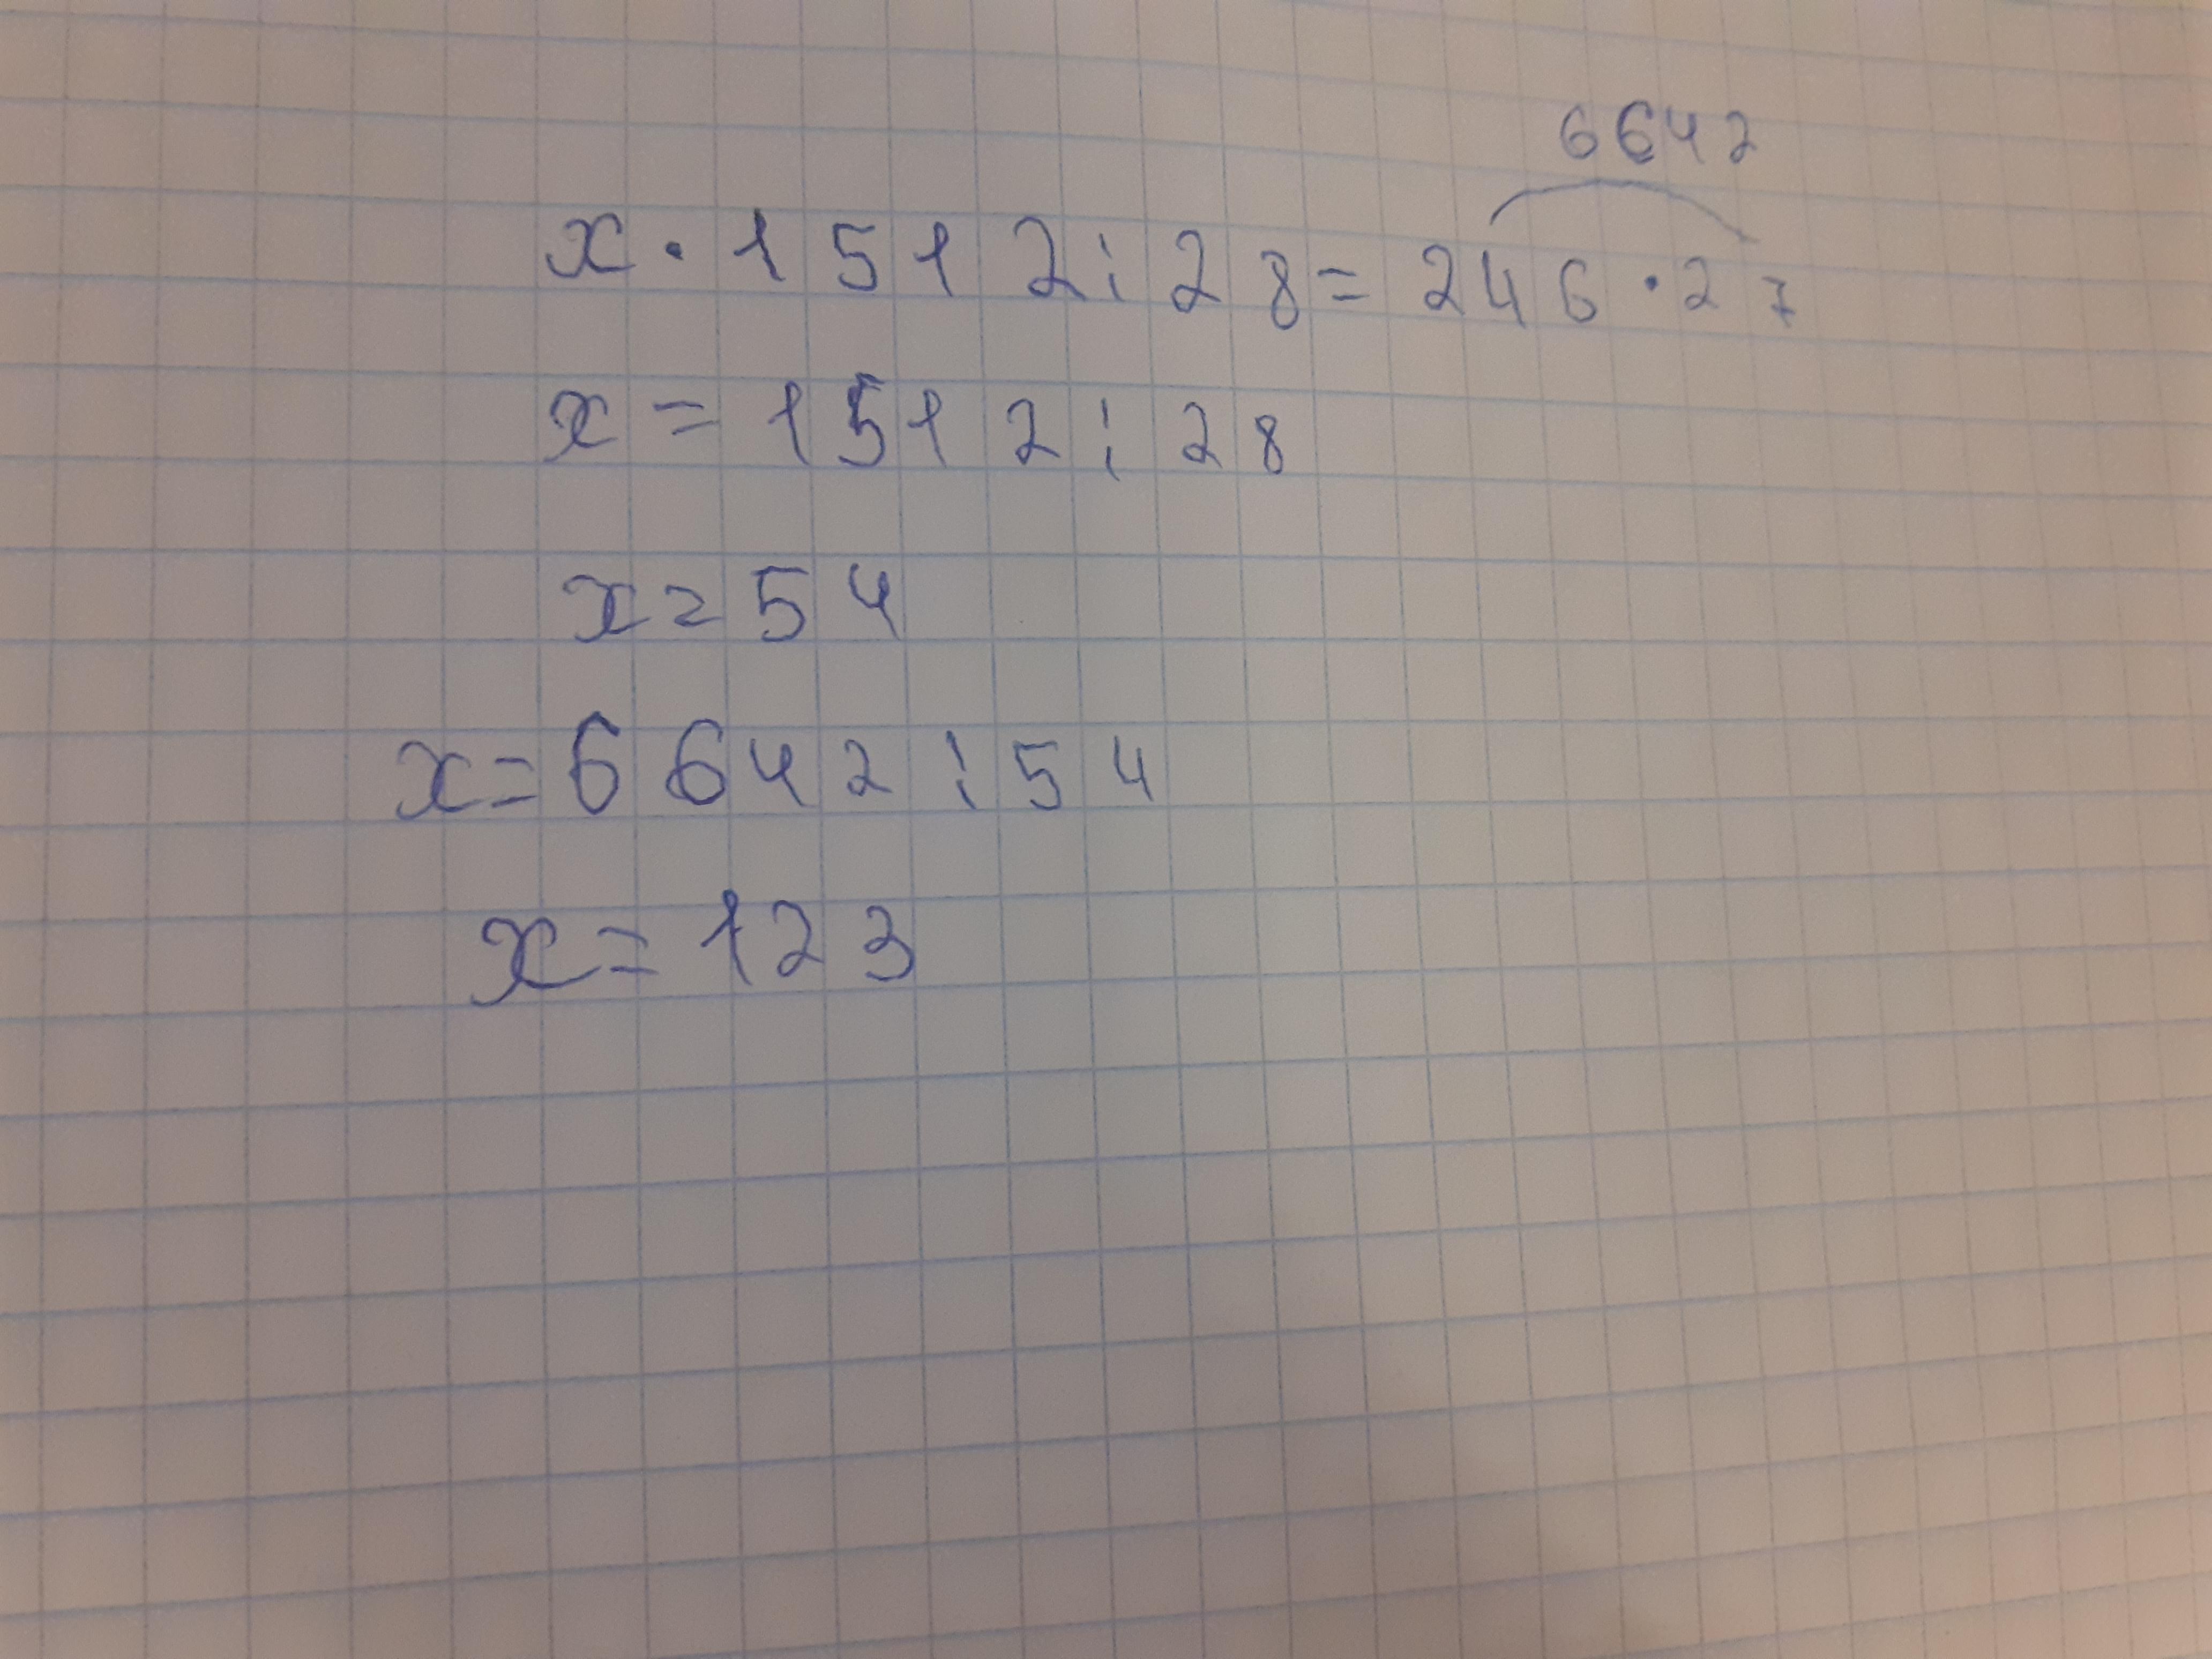 6642
x · 1512 : 28 = 246 · 27
x = 1512 : 28
x = 54
x = 6642 : 54
x = 123